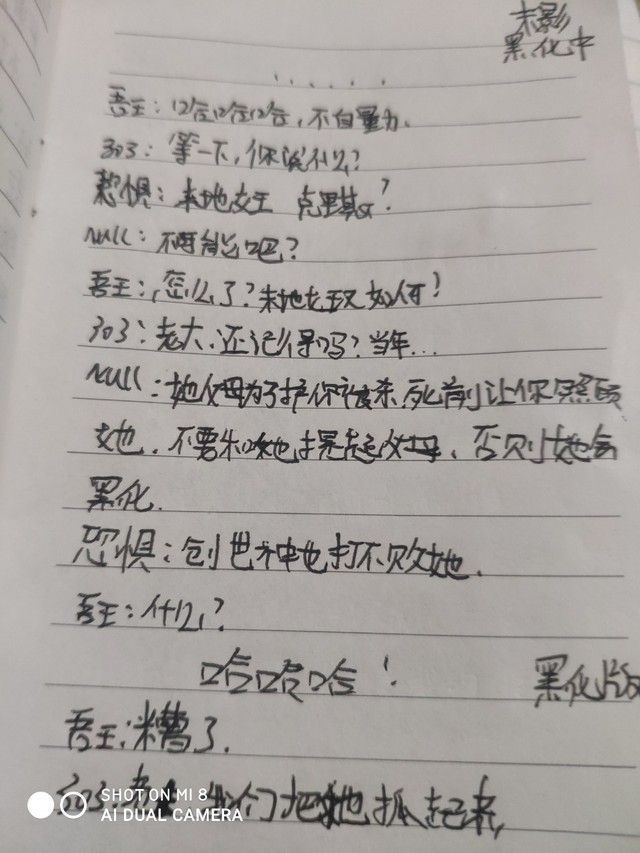 末影
黑化中
......
吾王：哈哈哈，不自量力。
303：等一下，你说什么？
恐惧：末地女王 克里其女？
NUll：不可能吧？
吾王：怎么了？末地女王又如何？
303：老大，还记得吗？当年...
NUll：她父母为了护你被杀，死前让你照顾
她，不要和她提起父母，否则她会
黑化。
恐惧：创世神也打不败她。
吾王：什么？
哈哈哈！ 黑化版
吾王：糟了。
303：老大 我们把她抓起来，
SHOT ON MI 8
AI DUAL CAMERA